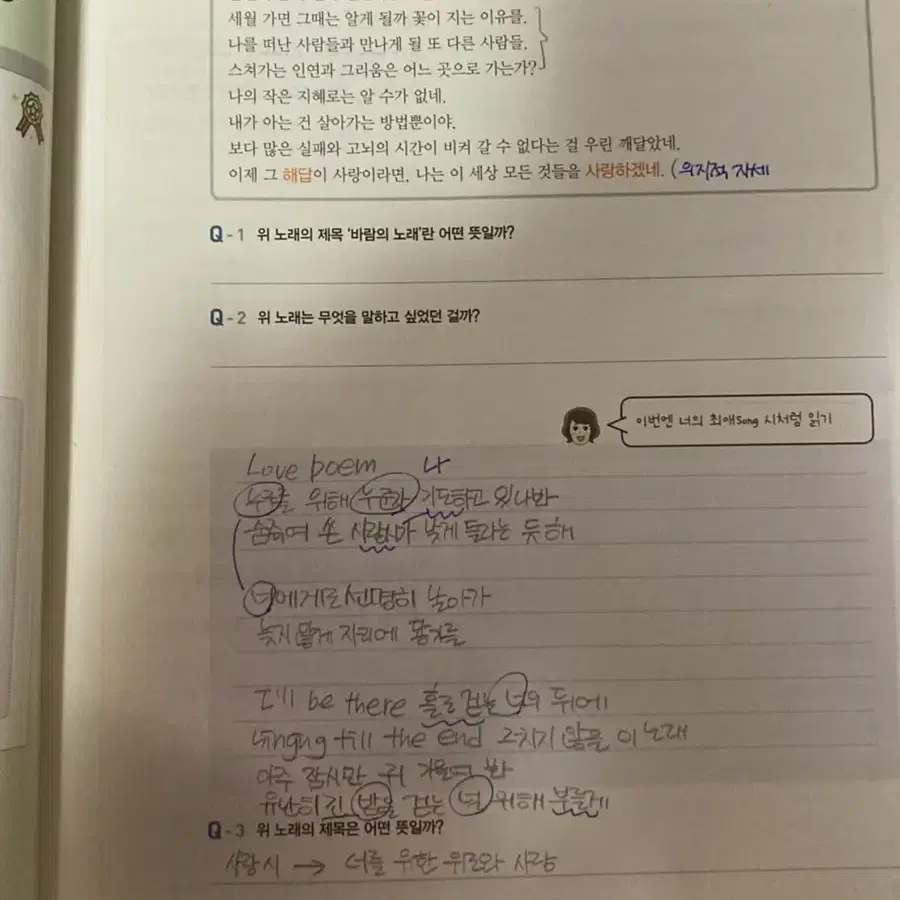 세월 가면 그때는 알게 될까 꽃이 지는 이유를.
나를 떠난 사람들과 만나게 될 또 다른 사람들.
스쳐가는 인연과 그리움은 어느 곳으로 가는가?
나의 작은 지혜로는 알 수가 없네.
내가 아는 건 살아가는 방법뿐이야.
보다 많은 실패와 고뇌의 시간이 비켜 갈 수 없다는 걸 우린 깨달았네.
이제 그 해답이 사랑이라면, 나는 이 세상 모든 것들을 사랑하겠네. (의지적 자세
Q-1 위 노래의 제목 '바람의 노래'란 어떤 뜻일까?
Q-2 위 노래는 무엇을 말하고 싶었던 걸까?
이번엔 너의 최애song 시처럼 읽기
Love poem 나
누구를 위해 누군가 기도하고 있나봐
숨죽여 쓴 사랑시가 낮게 들리는 듯해
너에게로 선명히 날아가
늦지 않게 자리에 닿기를
I'll be there 홀로 걷는 너의 뒤에
Singing till the end 그치지 않을 이 노래
아주 잠시만 귀 기울여 봐
유난히 긴 밤을 걷는 널 위해 부를게
Q-3 위 노래의 제목은 어떤 뜻일까?
사랑시 → 너를 위한 위로와 사랑